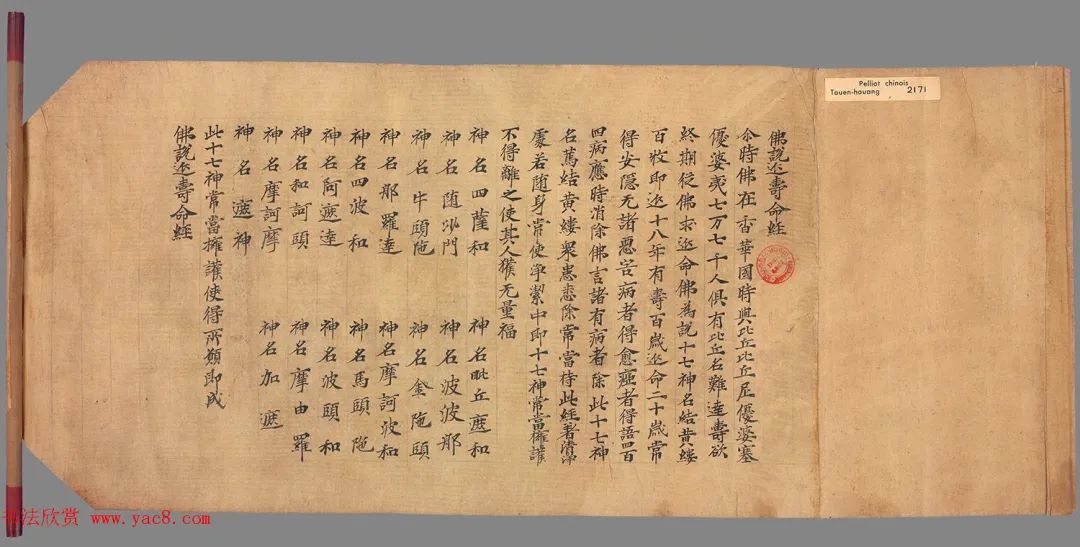 Pelliot chinois
Touen-houang 2171
佛說延壽命經
尒時佛在香華國時與比丘比丘尼優婆塞
優婆夷七万七千人俱有比丘名難達壽欲
終期從佛求延命佛為說十七神名結黃縷
百枚即延十八年有壽百歲延命二十歲常
得安隱无諸惡害病者得愈瘂者得語四百
四病應時消除佛言諸有病者除此十七神
名萬結黃縷衆患悉除常當持此經著淸淨
處若随身常使淨潔中即十七神常當擁護
不得離之使其人獲无量福
神名四薩和 神名毗丘遮和
神名随沙門 神名波波那
神名牛頭陁 神名金陁頭
神名那羅達 神名摩訶波和
神名四波和 神名馬頭陁
神名阿遮達 神名波頭和
神名和訶頭 神名摩由羅
神名摩訶摩 神名加遮
神名遮神
此十七神常當擁護使得所願即成
佛說延壽命經
书法欣赏 www.yac8.com